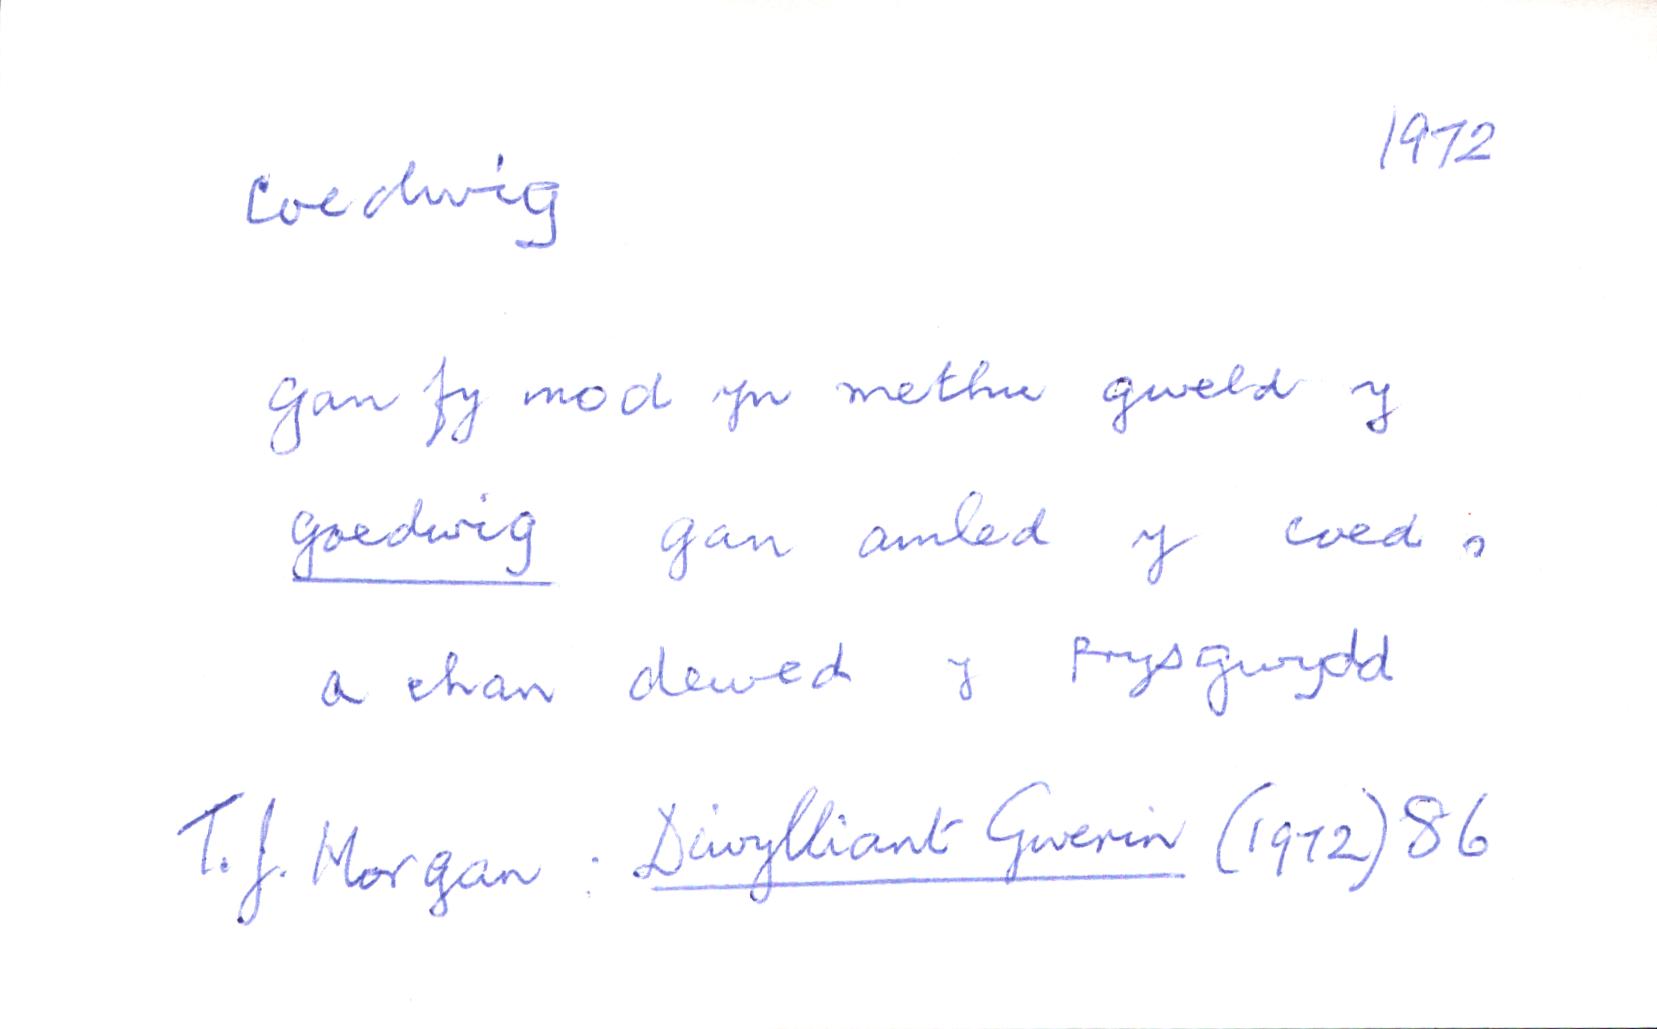 1972
coedwig
gan fy mod yn methu gweld y
goedwig gan amled y coed,
a chan dewed y prysgwydd
T.J. Morgan : Diwylliant Gwerin (1972) 86